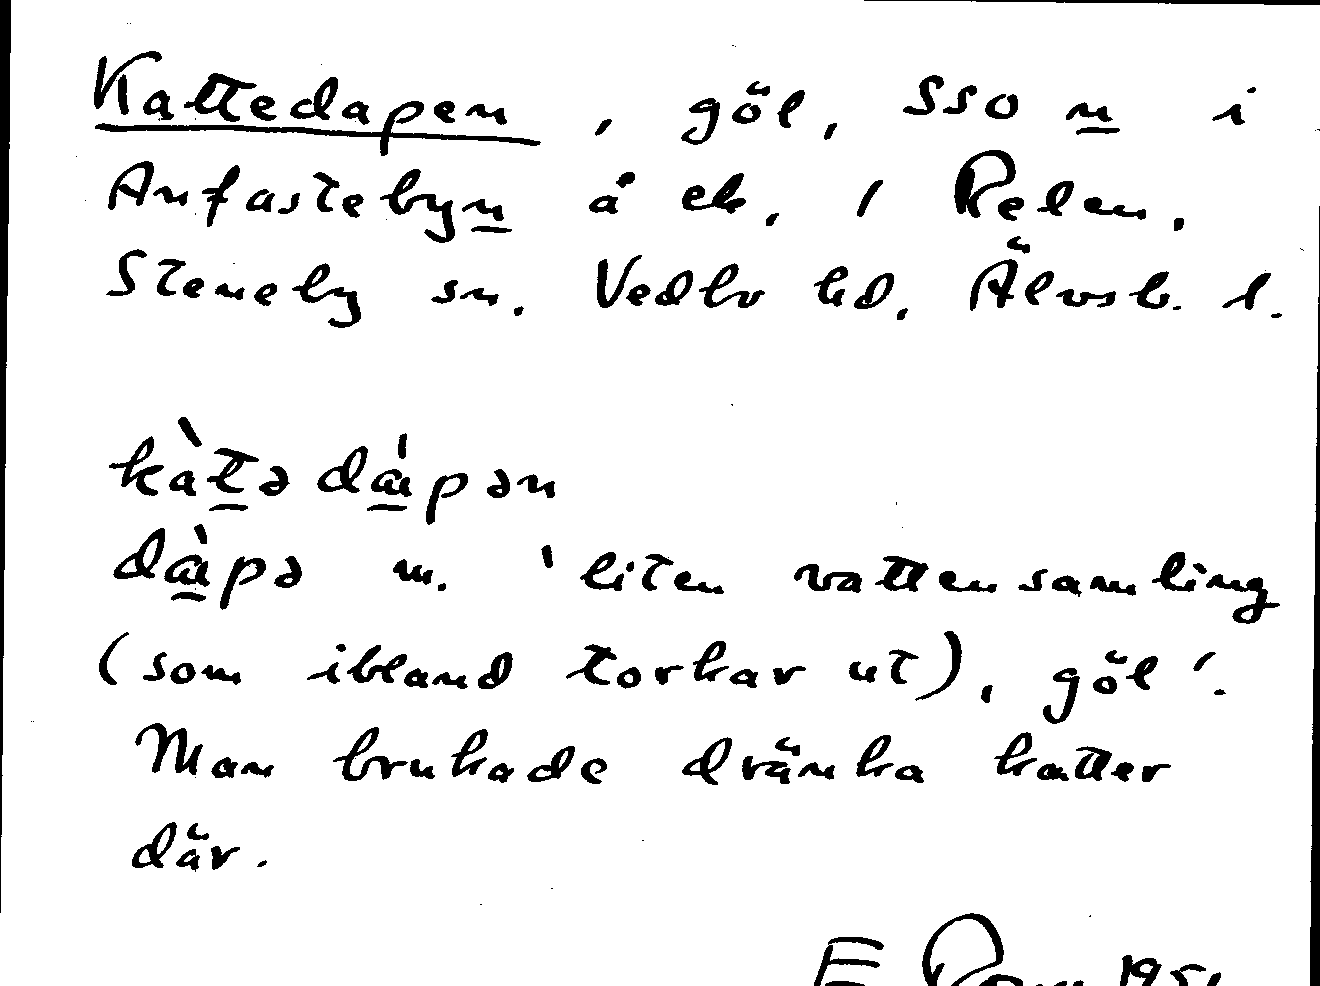 Kattedapen, göl, SSO n i
Anfastebyn å ek. / Relen.
Steneby sn. Vedbo hd. Älvsb. l.
kàtə dápən
dàpə m. 'liten vattensamling
(som ibland torkar ut), göl'.
Man brukade dränka katter
där.
E